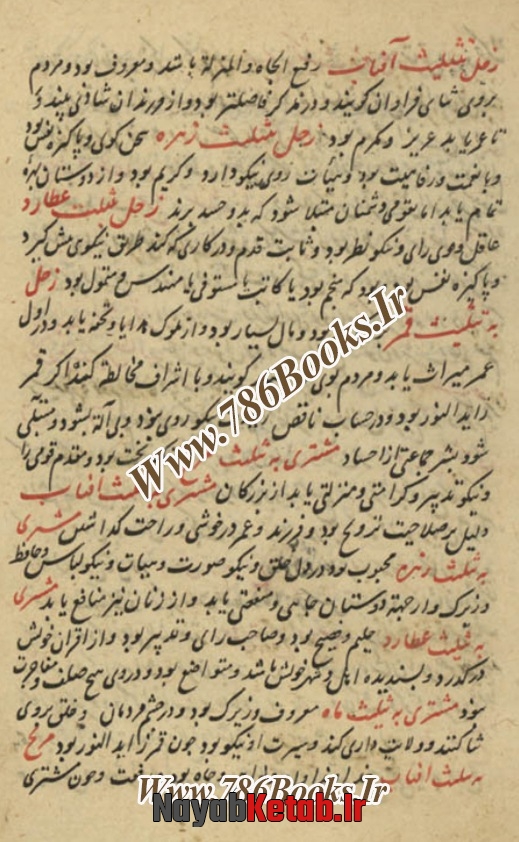 زحل بتثلیث آفتاب رفیع الجاه والمنزلة باشد و معروف بود و مردم
بروی ثنای فراوان گویند و در ند کر فاضلتر بود و از فرزندان شادی بیند و
تا عز یابد عزیز و مکرم بود زحل بتثلیث زهره سخن کوی و پاکیزه نفس بود
و با نعمت و رفاهیت بود و هیأت روی نیکو دارد و کریم بود و از دوستان بهره
تمام یابد اما بقومی دشمنان مبتلا شود که بدو حسد برند زحل بتثلیث عطارد
عاقل و قوی رای و نیکو نظر بود و ثابت قدم و در کاری که کند طریق نیکوی پیش گیرد
و پاکیزه نفس بود که منجم بود یا کاتب یا مستوفی یا مهندس و متمول بود زحل
به تثلیث قمر بود و مال بسیار بود و از ملوک عطایا و تحفه یابد و در اول
عمر میراث یابد و مردم بوی گویند و با اشراف مخالطه کند اگر قمر
زاید النور بود و در حساب ناقص نیکو روی بود و بی آلة بشود و مبتلی
شود بشر جماعتی از حساد مشتری به تثلیث بخت بود و مقدم قومی را
و نیکو تدبیر و کرامتی و منزلتی یابد از بزرگان مشتری به تثلیث آفتاب
دلیل بر صلاحیت تزویج بود و فرزند و عمر در خوشی و راحت گذاشتن مشتری
به تثلیث زهره محبوب بود در دل خلق و نیکو صورت و هیأت و نیکو لباس و حافظ
و زیرک و از جهة دوستان جاهی و منفعتی یابد و از زنان نیز منافع یابد مشتری
به تثلیث عطارد حلیم و فصیح بود و صاحب رای و تدبیر بود و از اقران خویش
در گذرد و پسندیده اهل و شهر خویش باشد و متواضع بود و در وی هیچ صلف و مفاخرت
نبود مشتری به تثلیث ماه معروف و زیرک بود و در چشم مردمان و خلق بروی
ثنا کنند و ولایت داری کند و سیرت او نیکو بود چون قمر زاید النور بود مریخ
به تثلیث آفتاب جاه بود و چون مشتری
Www.786Books.Ir
Www.786Books.Ir
NayabKetab.ir